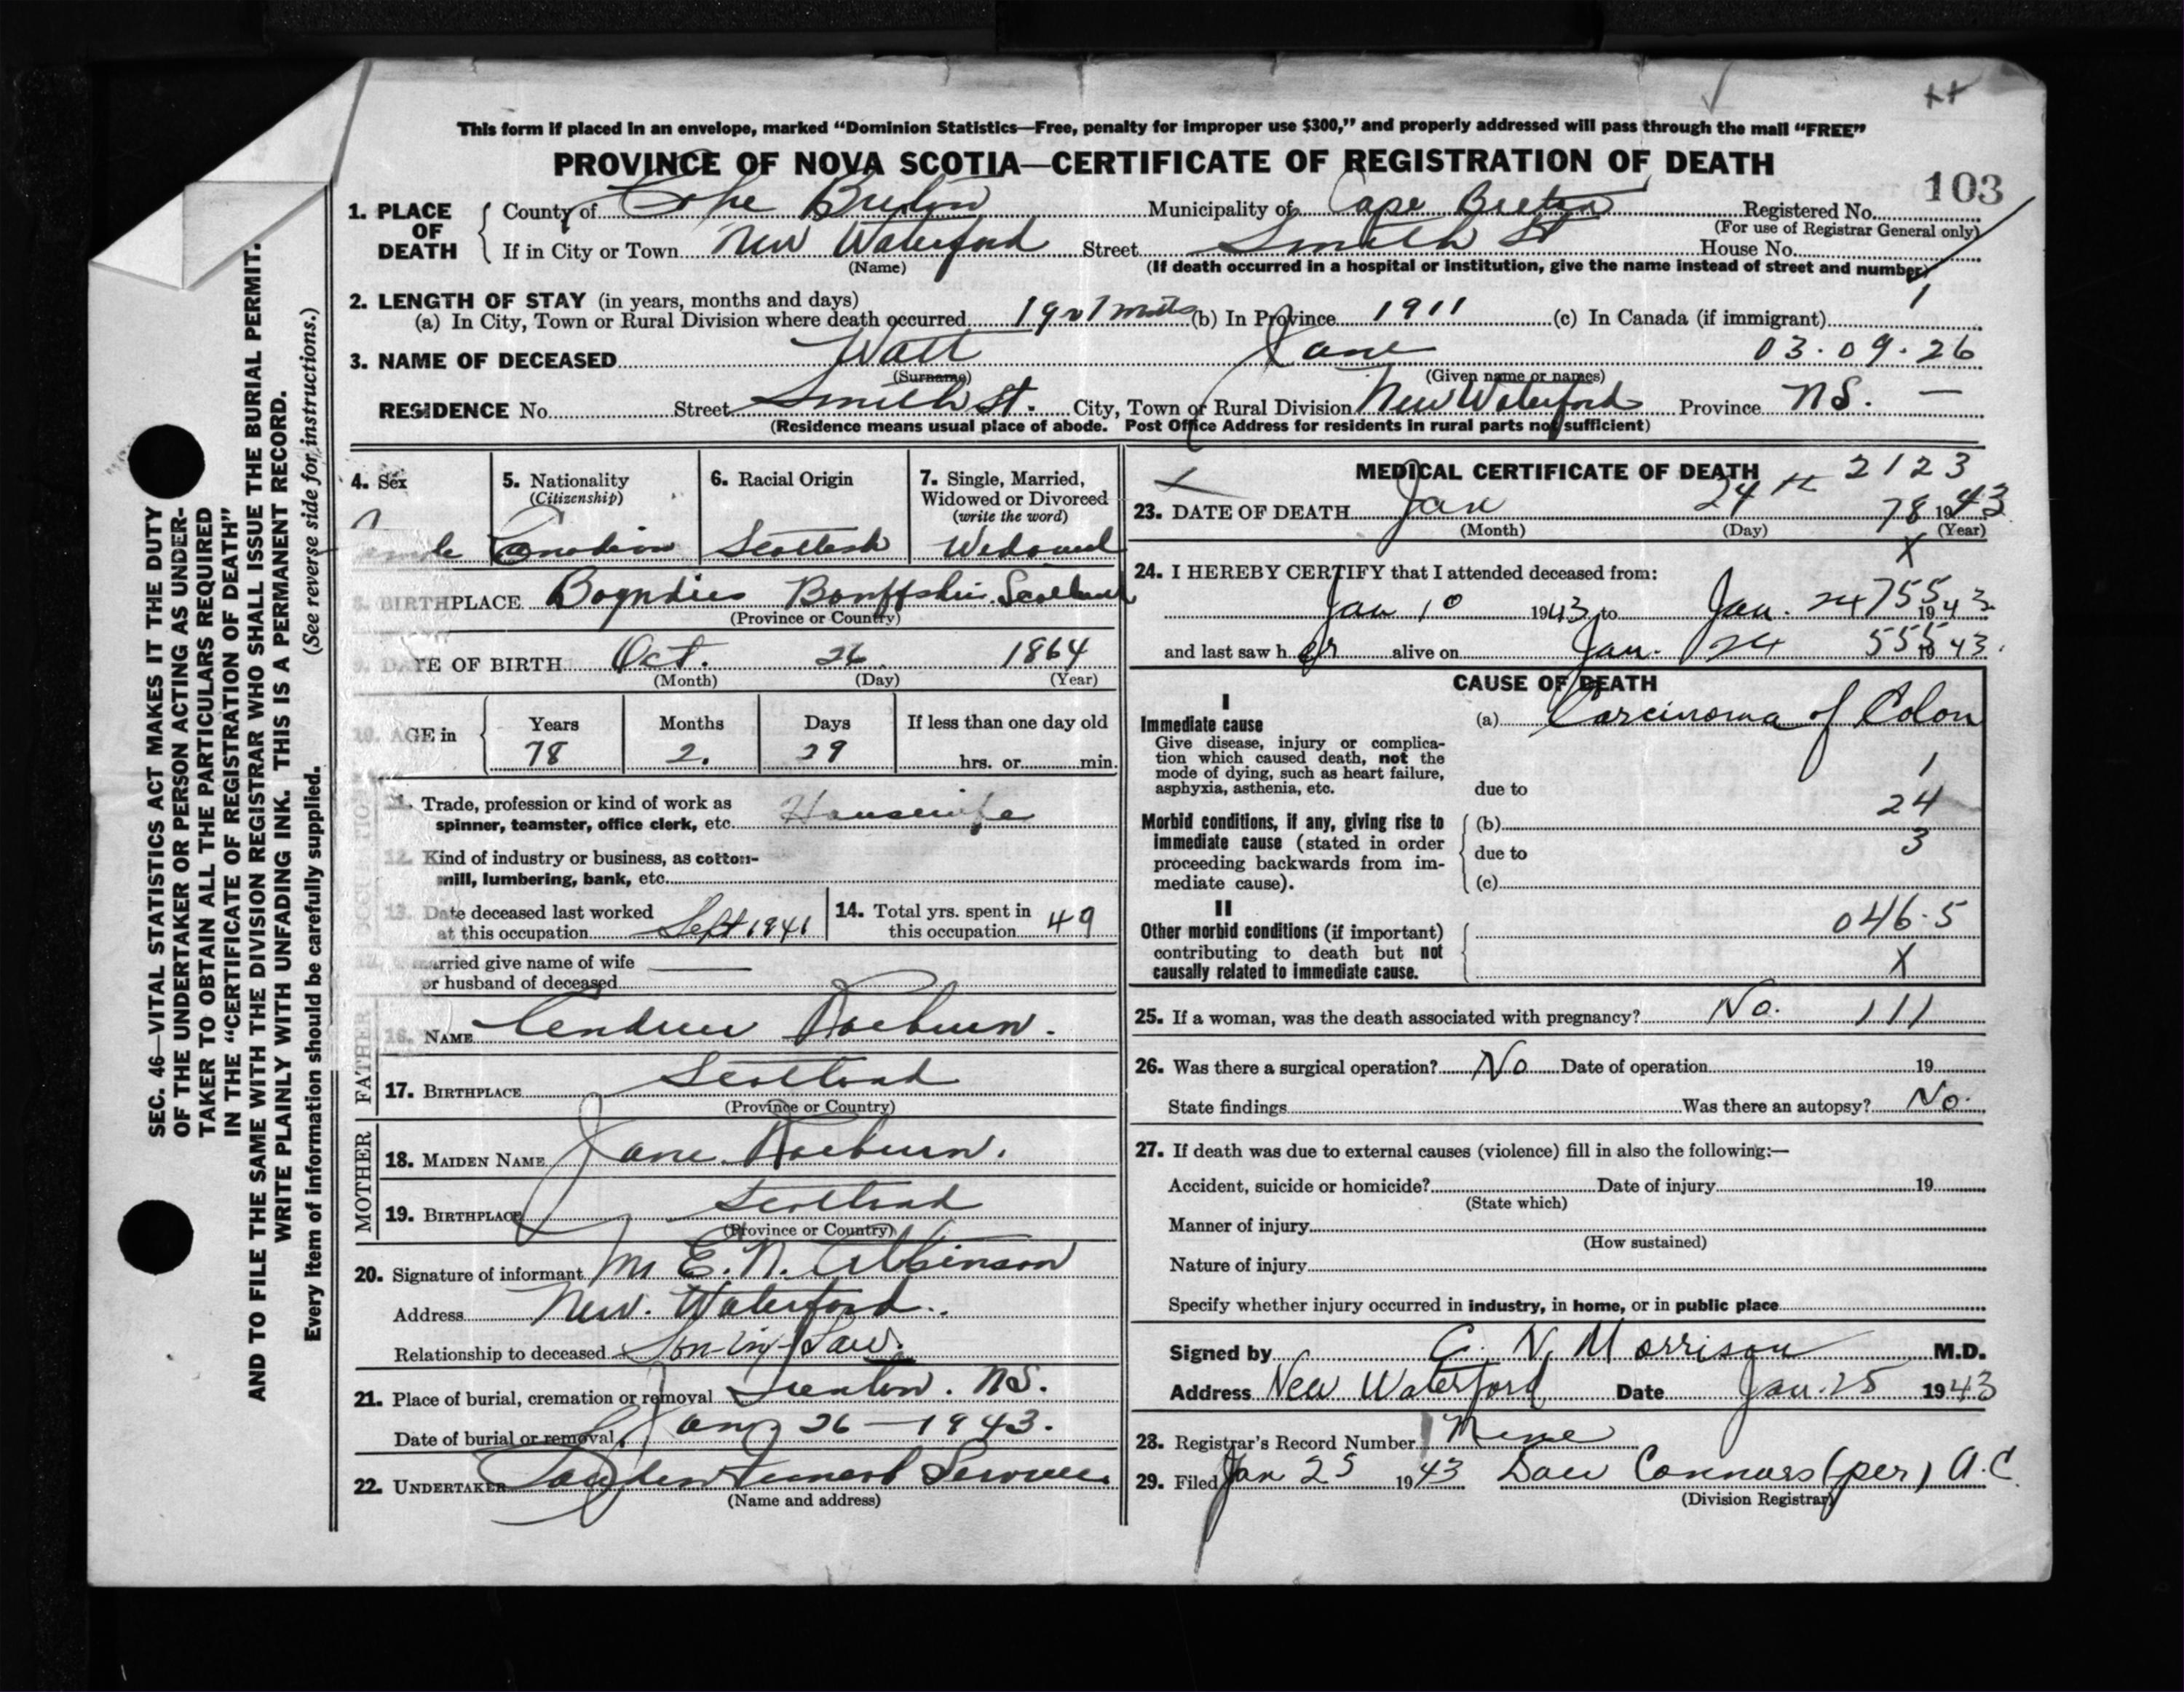 This form if placed in an envelope, marked "Dominion Statistics—Free, penalty for improper use $300," and properly addressed will pass through the mail "FREE"
PROVINCE OF NOVA SCOTIA—CERTIFICATE OF REGISTRATION OF DEATH
103
1. PLACE OF DEATH County of Cape Breton Municipality of Cape Breton Registered No.
(For use of Registrar General only)
If in City or Town New Waterford Street Smith St House No.
(Name) (If death occurred in a hospital or institution, give the name instead of street and number)
2. LENGTH OF STAY (in years, months and days) 1
(a) In City, Town or Rural Division where death occurred (b) In Province 1911 (c) In Canada (if immigrant)
3. NAME OF DECEASED Watt Jane 03.09.26
(Surname) (Given name or names)
RESIDENCE No. Street Smith St. City, Town or Rural Division New Waterford Province N.S. —
(Residence means usual place of abode. Post Office Address for residents in rural parts not sufficient)
4. Sex
5. Nationality
(Citizenship)
6. Racial Origin
7. Single, Married, Widowed or Divorced
(write the word)
Female Canadian Scottish Widowed
8. BIRTHPLACE Boyndie Banffshire Scotland
(Province or Country)
9. DATE OF BIRTH Oct. 26 1864
(Month) (Day) (Year)
10. AGE in Years Months Days If less than one day old
78 2. 29 hrs. or min.
11. Trade, profession or kind of work as
spinner, teamster, office clerk, etc. Housewife
12. Kind of industry or business, as cotton-
mill, lumbering, bank, etc.
13. Date deceased last worked
at this occupation Sept 1941
14. Total yrs. spent in
this occupation 49
married give name of wife
or husband of deceased
FATHER
16. NAME Andrew Raeburn.
17. BIRTHPLACE Scotland
(Province or Country)
MOTHER
18. MAIDEN NAME Jane Raeburn.
19. BIRTHPLACE Scotland
(Province or Country)
20. Signature of informant E. N. Atkinson
Address New Waterford.
Relationship to deceased Son-in-Law.
21. Place of burial, cremation or removal Trenton. N.S.
Date of burial or removal Jan 26 — 1943.
22. UNDERTAKER Funeral Service.
(Name and address)
MEDICAL CERTIFICATE OF DEATH 2123
23. DATE OF DEATH Jan 24th 78 1943
(Month) (Day) (Year)
X
24. I HEREBY CERTIFY that I attended deceased from:
Jan 10 1943 to Jan. 24 755 1943
and last saw her alive on Jan. 24 555 1943.
CAUSE OF DEATH
I
Immediate cause (a) Carcinoma of Colon
Give disease, injury or complica-
tion which caused death, not the
mode of dying, such as heart failure,
asphyxia, asthenia, etc. due to
1
24
Morbid conditions, if any, giving rise to
immediate cause (stated in order
proceeding backwards from im-
mediate cause).
(b)
due to 3
(c)
II
Other morbid conditions (if important)
contributing to death but not
causally related to immediate cause.
046.5
X
25. If a woman, was the death associated with pregnancy? No. 111
26. Was there a surgical operation? No Date of operation 19
State findings Was there an autopsy? No.
27. If death was due to external causes (violence) fill in also the following:—
Accident, suicide or homicide? Date of injury 19
(State which)
Manner of injury
(How sustained)
Nature of injury
Specify whether injury occurred in industry, in home, or in public place
Signed by N. Morrison M.D.
Address New Waterford Date Jan. 25 1943
28. Registrar's Record Number Nine
29. Filed Jan 25 1943 Connors (per) A.C.
(Division Registrar)
SEC. 46—VITAL STATISTICS ACT MAKES IT THE DUTY
OF THE UNDERTAKER OR PERSON ACTING AS UNDER-
TAKER TO OBTAIN ALL THE PARTICULARS REQUIRED
IN THE "CERTIFICATE OF REGISTRATION OF DEATH"
AND TO FILE THE SAME WITH THE DIVISION REGISTRAR WHO SHALL ISSUE THE BURIAL PERMIT.
WRITE PLAINLY WITH UNFADING INK. THIS IS A PERMANENT RECORD.
Every item of information should be carefully supplied. (See reverse side for instructions.)